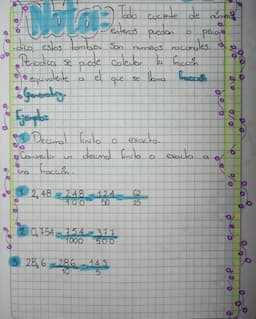 Nota: Todo cociente de números
enteros puedan o
dica estos también son números racionales.
Periodica se puede calcular la fracción
equivalente a el que se llama fracción
Generatriz.
Ejemplo:
Decimal finito o exacto.
Convertir un decimal finito o exacto a
una fracción.
1 2,48 = 248/100 = 124/50 = 62/25
2 0,754 = 754/1000 = 377/500
3 28,6 = 286/10 = 143/5